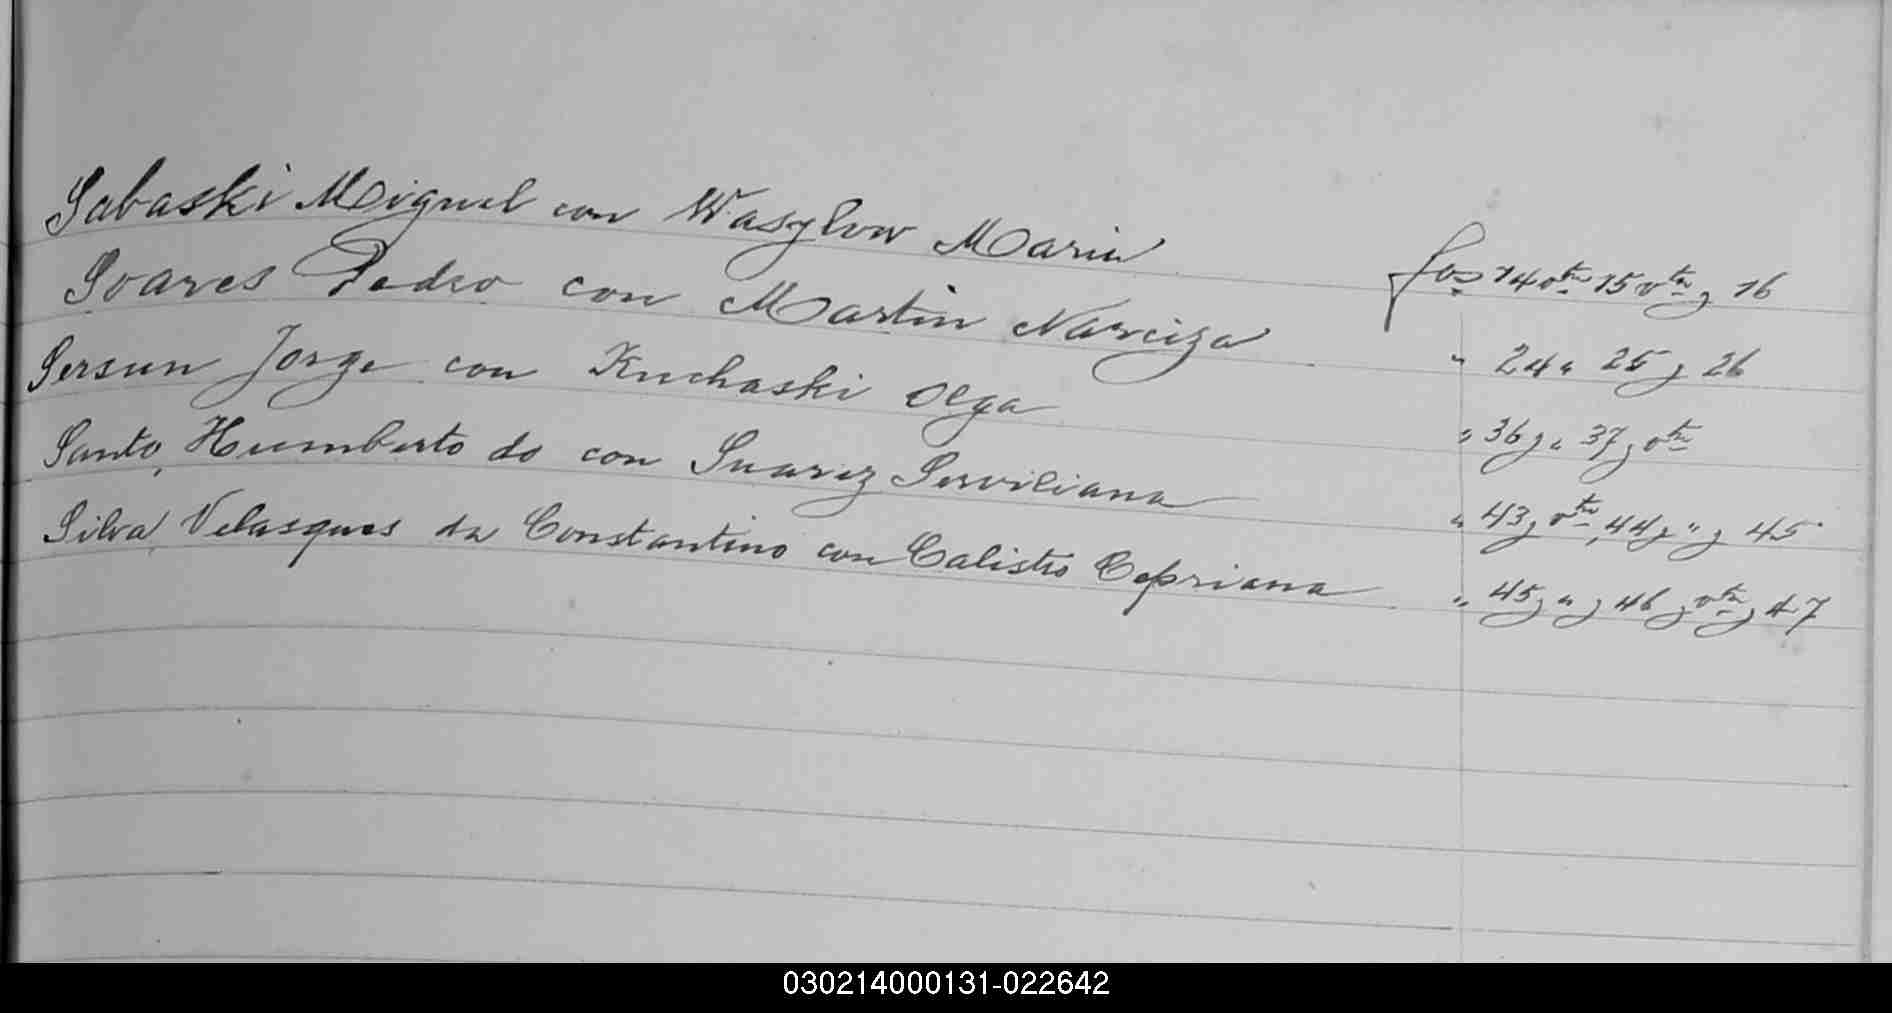 Sabaski Miguel con Wasylow Maria fos 14 vta 15 vta y 16
Soares Pedro con Martin Narciza " 24 " 25 y 26
Sersun Jorge con Kuchaski Olga " 36 y " 37 y vta
Santo, Humberto do con Suarez Serviliana " 43 y vta, 44 y " y 45
Silva, Velasques da Constantino con Calistro Cepriana " 45 y " y 46 y vta y 47
030214000131-022642